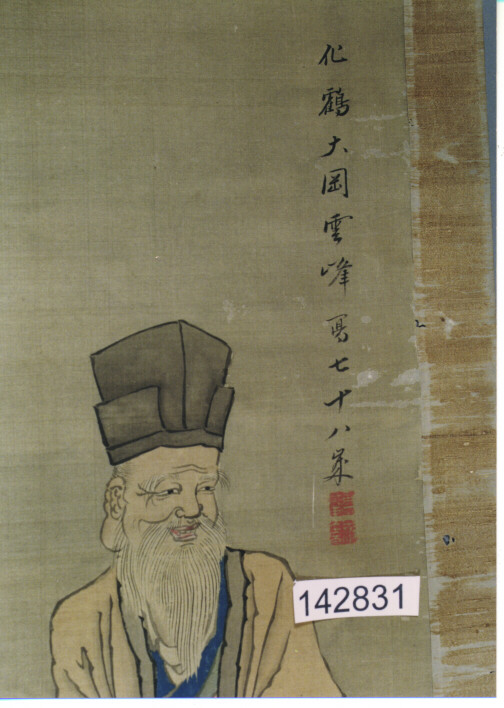 化鶴大岡雲峰寫七十八歳
142831